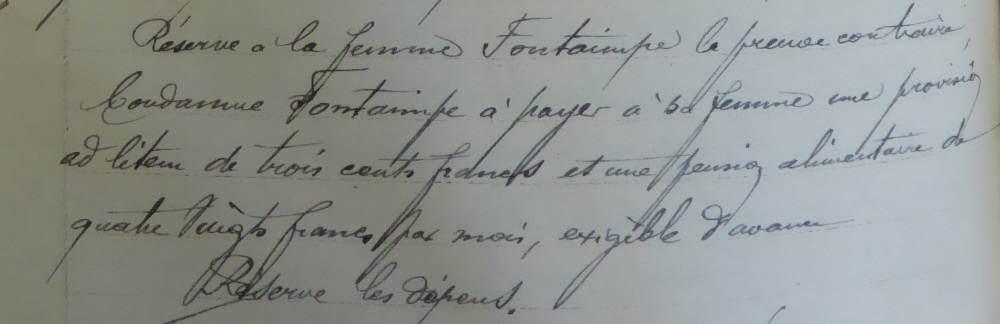 Réserve à la femme Fontaimpe la preuve contraire,
Condamne Fontaimpe à payer à sa femme une provision
ad litem de trois cents francs et une pension alimentaire de
quatre vingts francs par mois, exigible d'avance
Réserve les dépens.